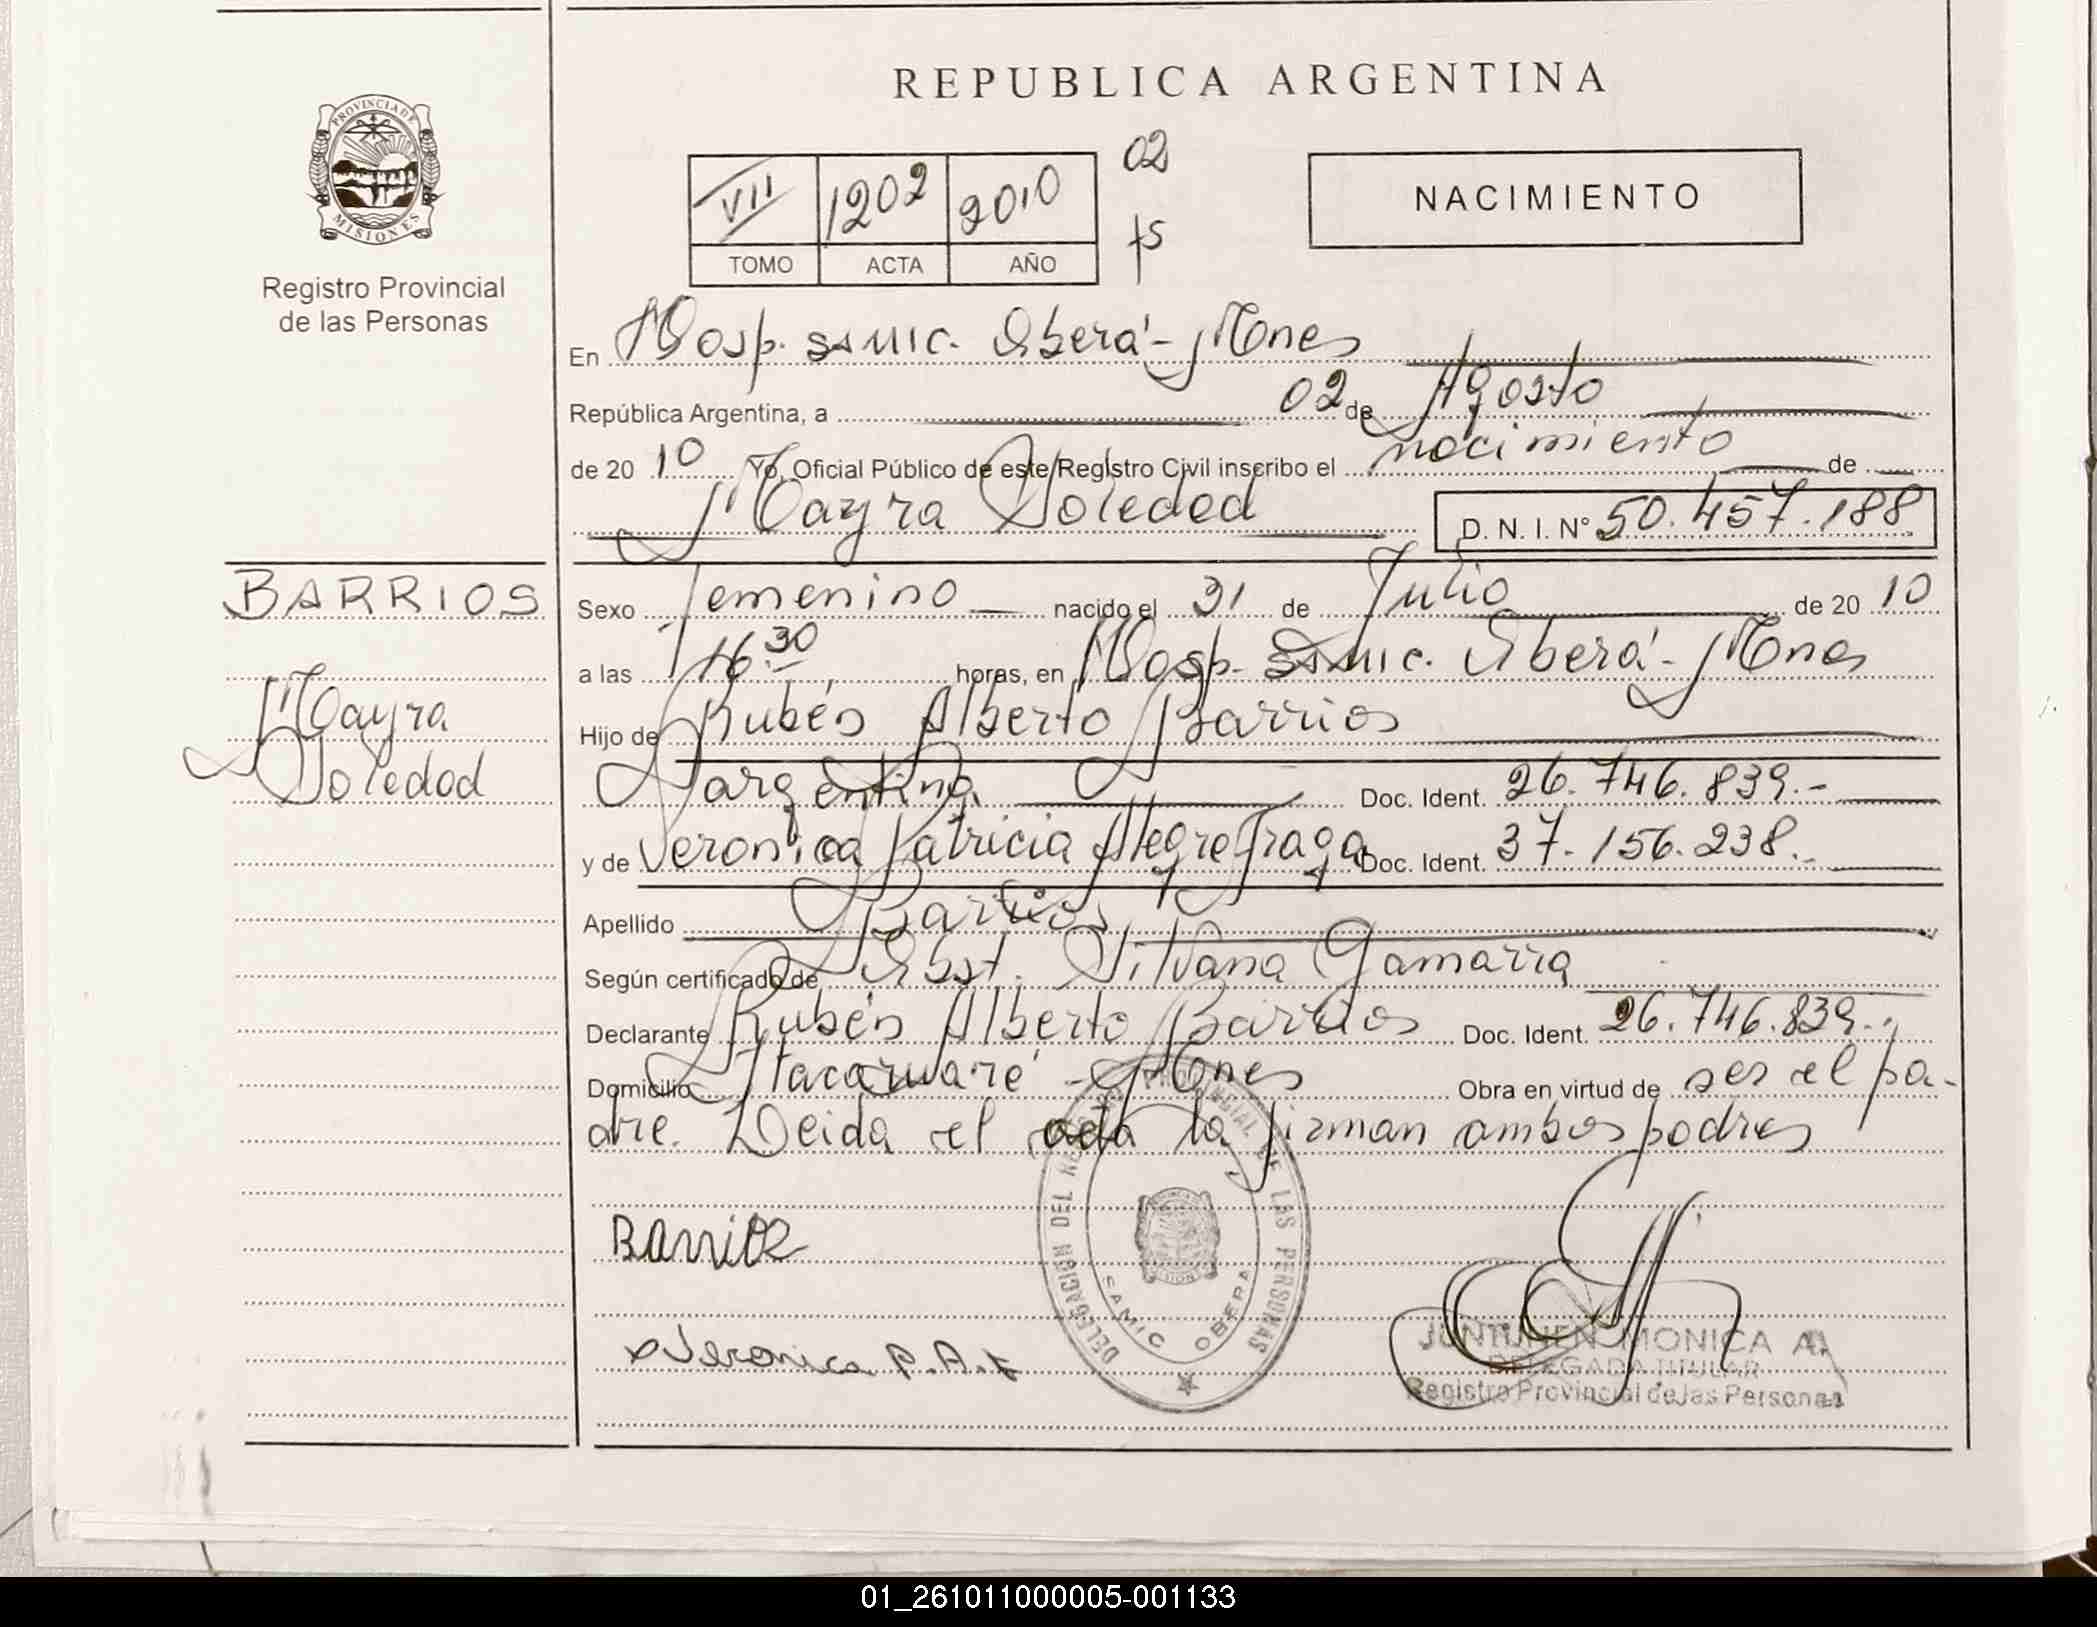 REPUBLICA ARGENTINA
PROVINCIA DE
MISIONES
Registro Provincial
de las Personas
VII 1202 2010 02
TOMO ACTA AÑO fs
NACIMIENTO
En Hosp. SAMIC. Oberá - Mnes
República Argentina, a 02 de Agosto
de 20 10 Yo, Oficial Público de este Registro Civil inscribo el nacimiento de
Mayra Soledad D. N. I. N° 50.457.188
BARRIOS
Mayra
Soledad
Sexo Femenino nacido el 31 de Julio de 20 10
a las 16.30 horas, en Hosp. SAMIC. Oberá - Mnes
Hijo de Rubén Alberto Barrios
argentina Doc. Ident. 26.746.839.-
y de Veronica Patricia Alegre Fraga Doc. Ident. 37.156.238.-
Apellido Barrios
Según certificado de Obst. Silvana Gamarra
Declarante Rubén Alberto Barrios Doc. Ident. 26.746.839.-
Domicilio Itacaruaré - Mnes Obra en virtud de ser el pa-
dre. Leida el acta la firman ambos padres
Barrios
Veronica P. A. f
DELEGACIÓN DEL REGISTRO PROVINCIAL DE LAS PERSONAS
SAMIC OBERA
JUNTUNEN MONICA A.
DELEGADA TITULAR
Registro Provincial de las Personas
01_261011000005-001133